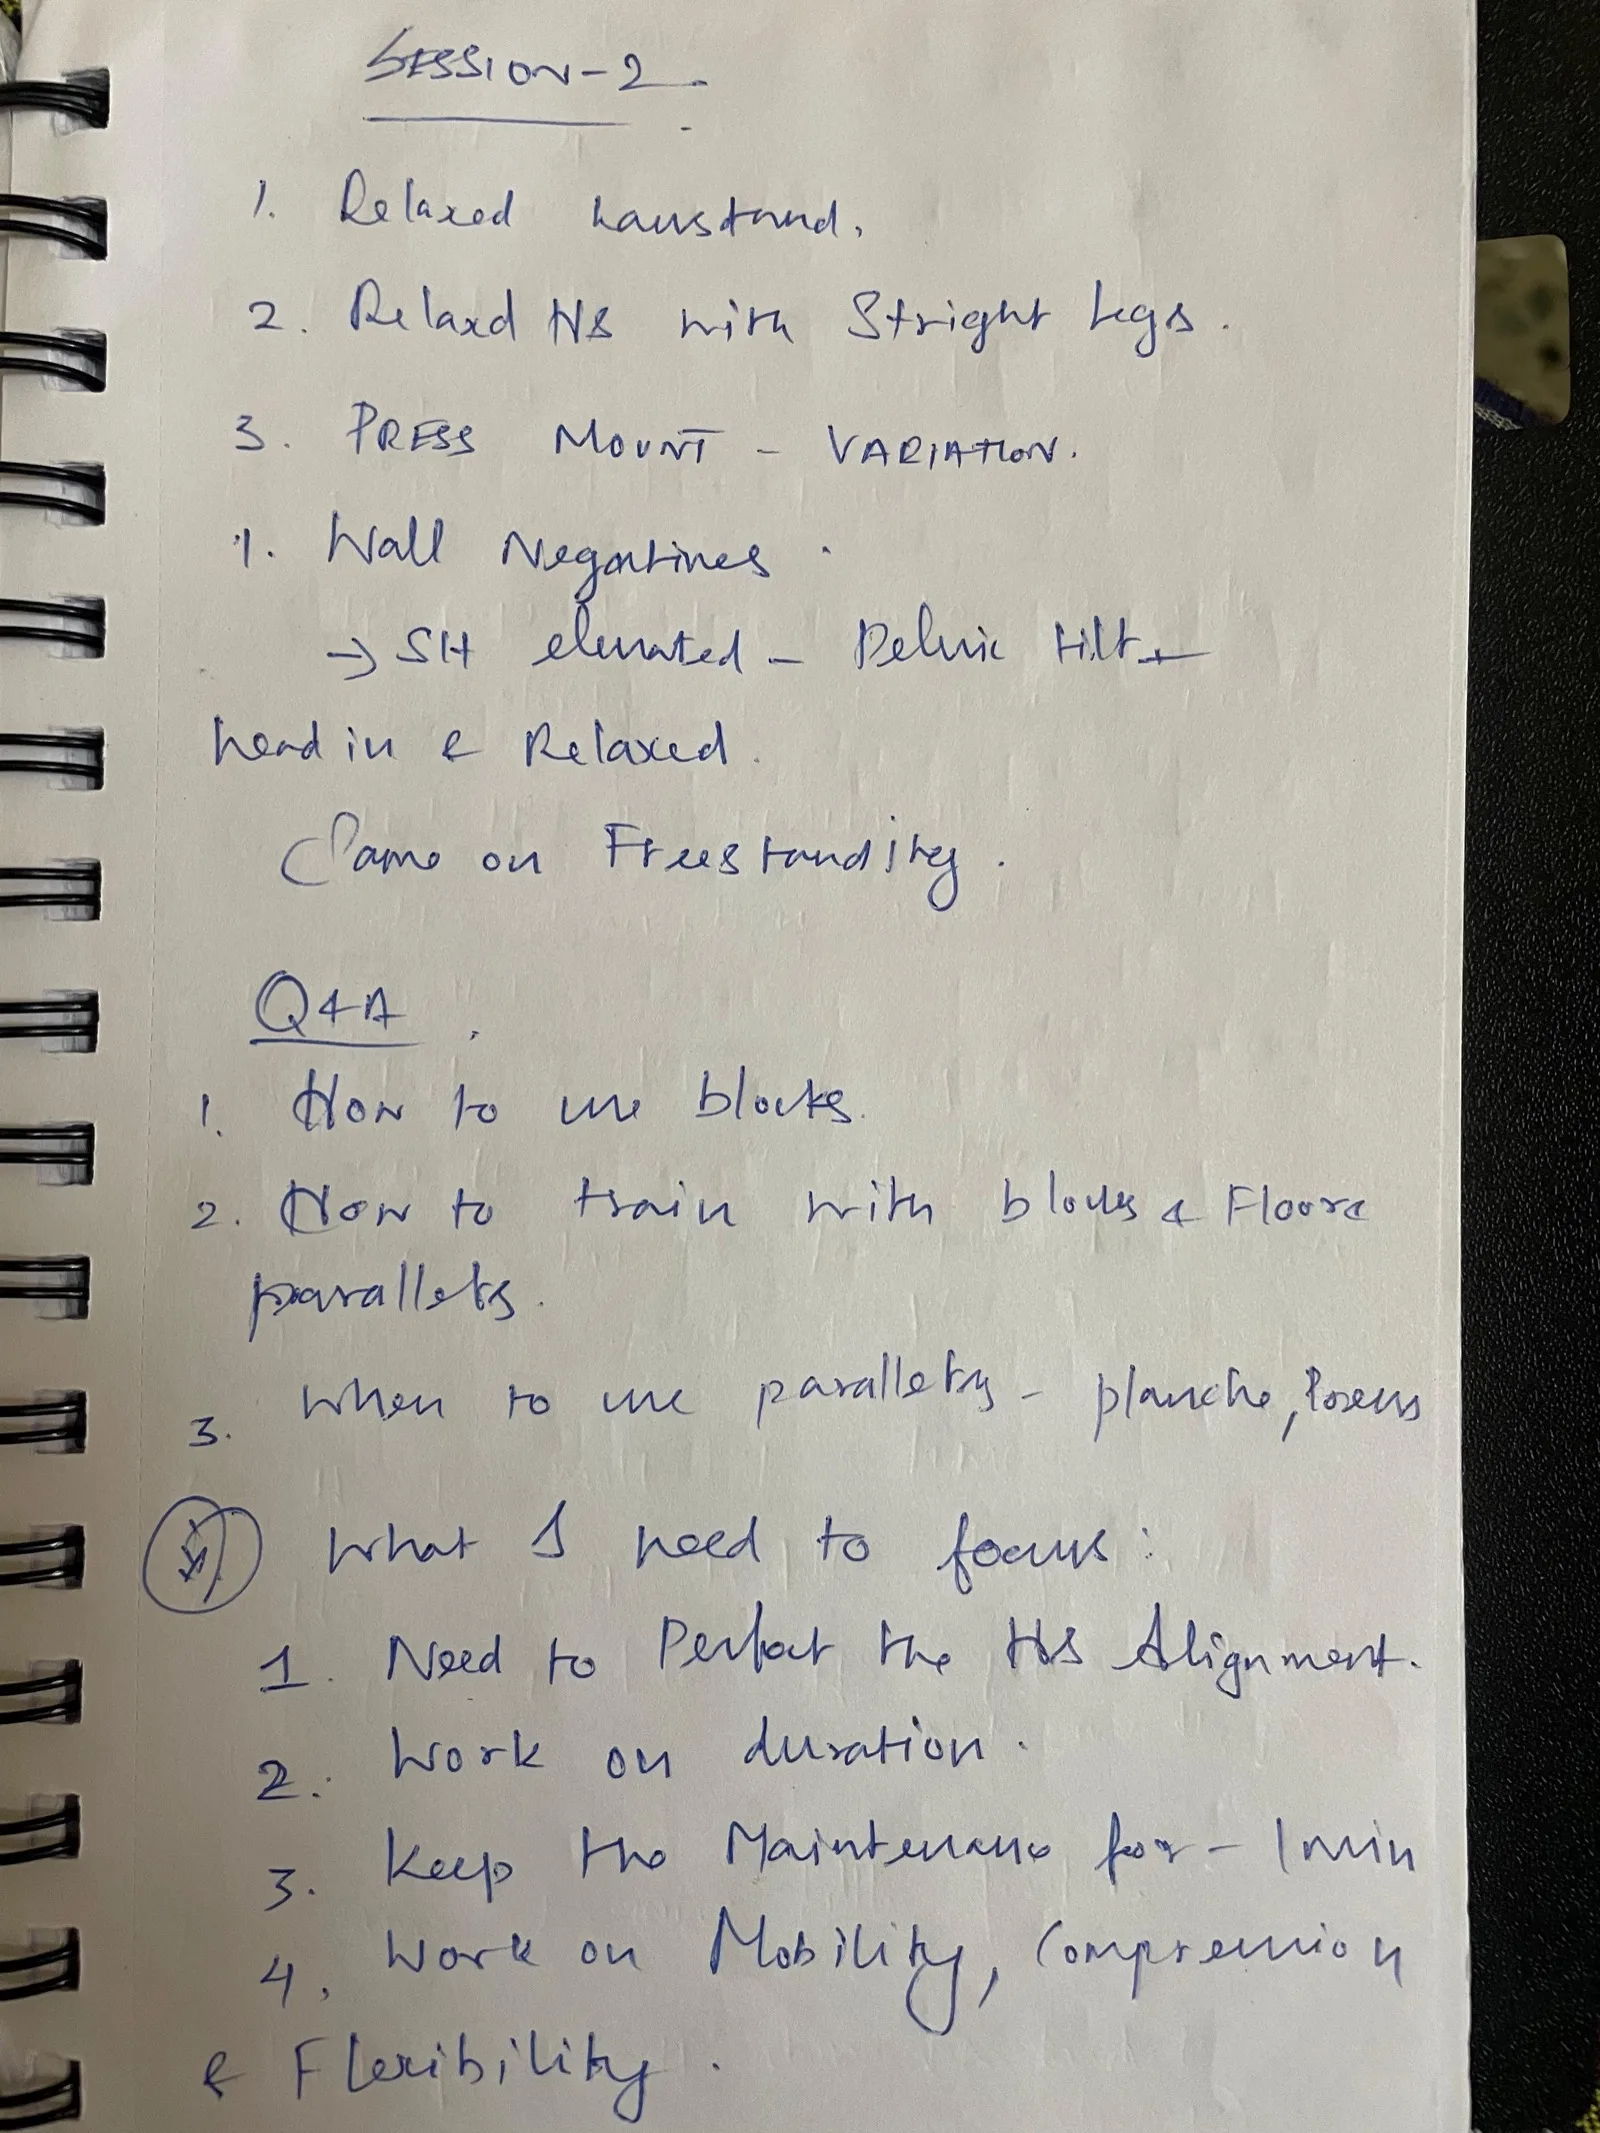 SESSION-2.
1. Relaxed hanstand.
2. Relaxd HS with Stright legs.
3. PRESS MOUNT - VARIATION.
1. Wall Negatives.
→ SH elevated - Pelvic tilt -
head in & Relaxed.
Same on Freestanding.
Q&A
1. How to use blocks.
2. How to train with blocks & Floore
parallets.
3. When to use parallets - planche,
What I need to focus:
1. Need to Perfect the HS Alignment.
2. Work on duration.
3. Keep the Maintenance for - 1 min
4. Work on Mobility, Compression
& Flexibility.